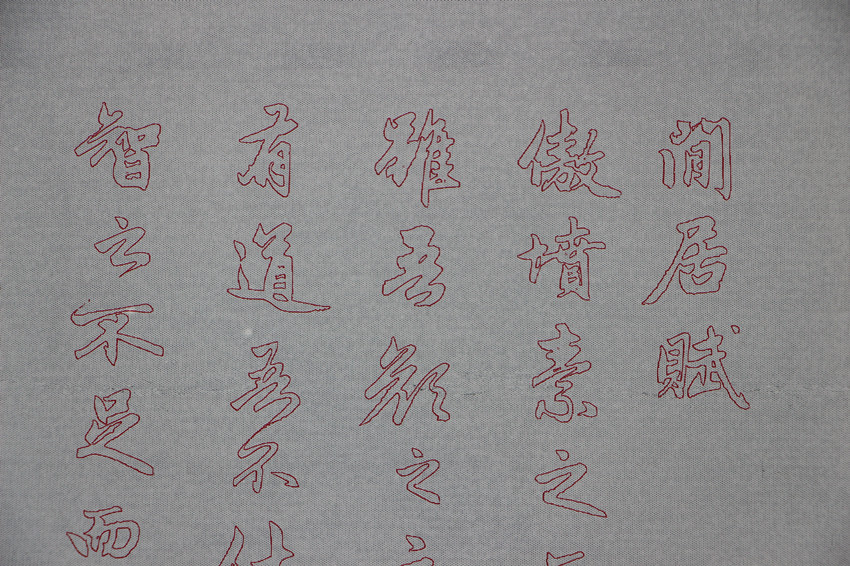 閒居賦
傲墳素之
雖吾顏之
有道吾不
智之不足而